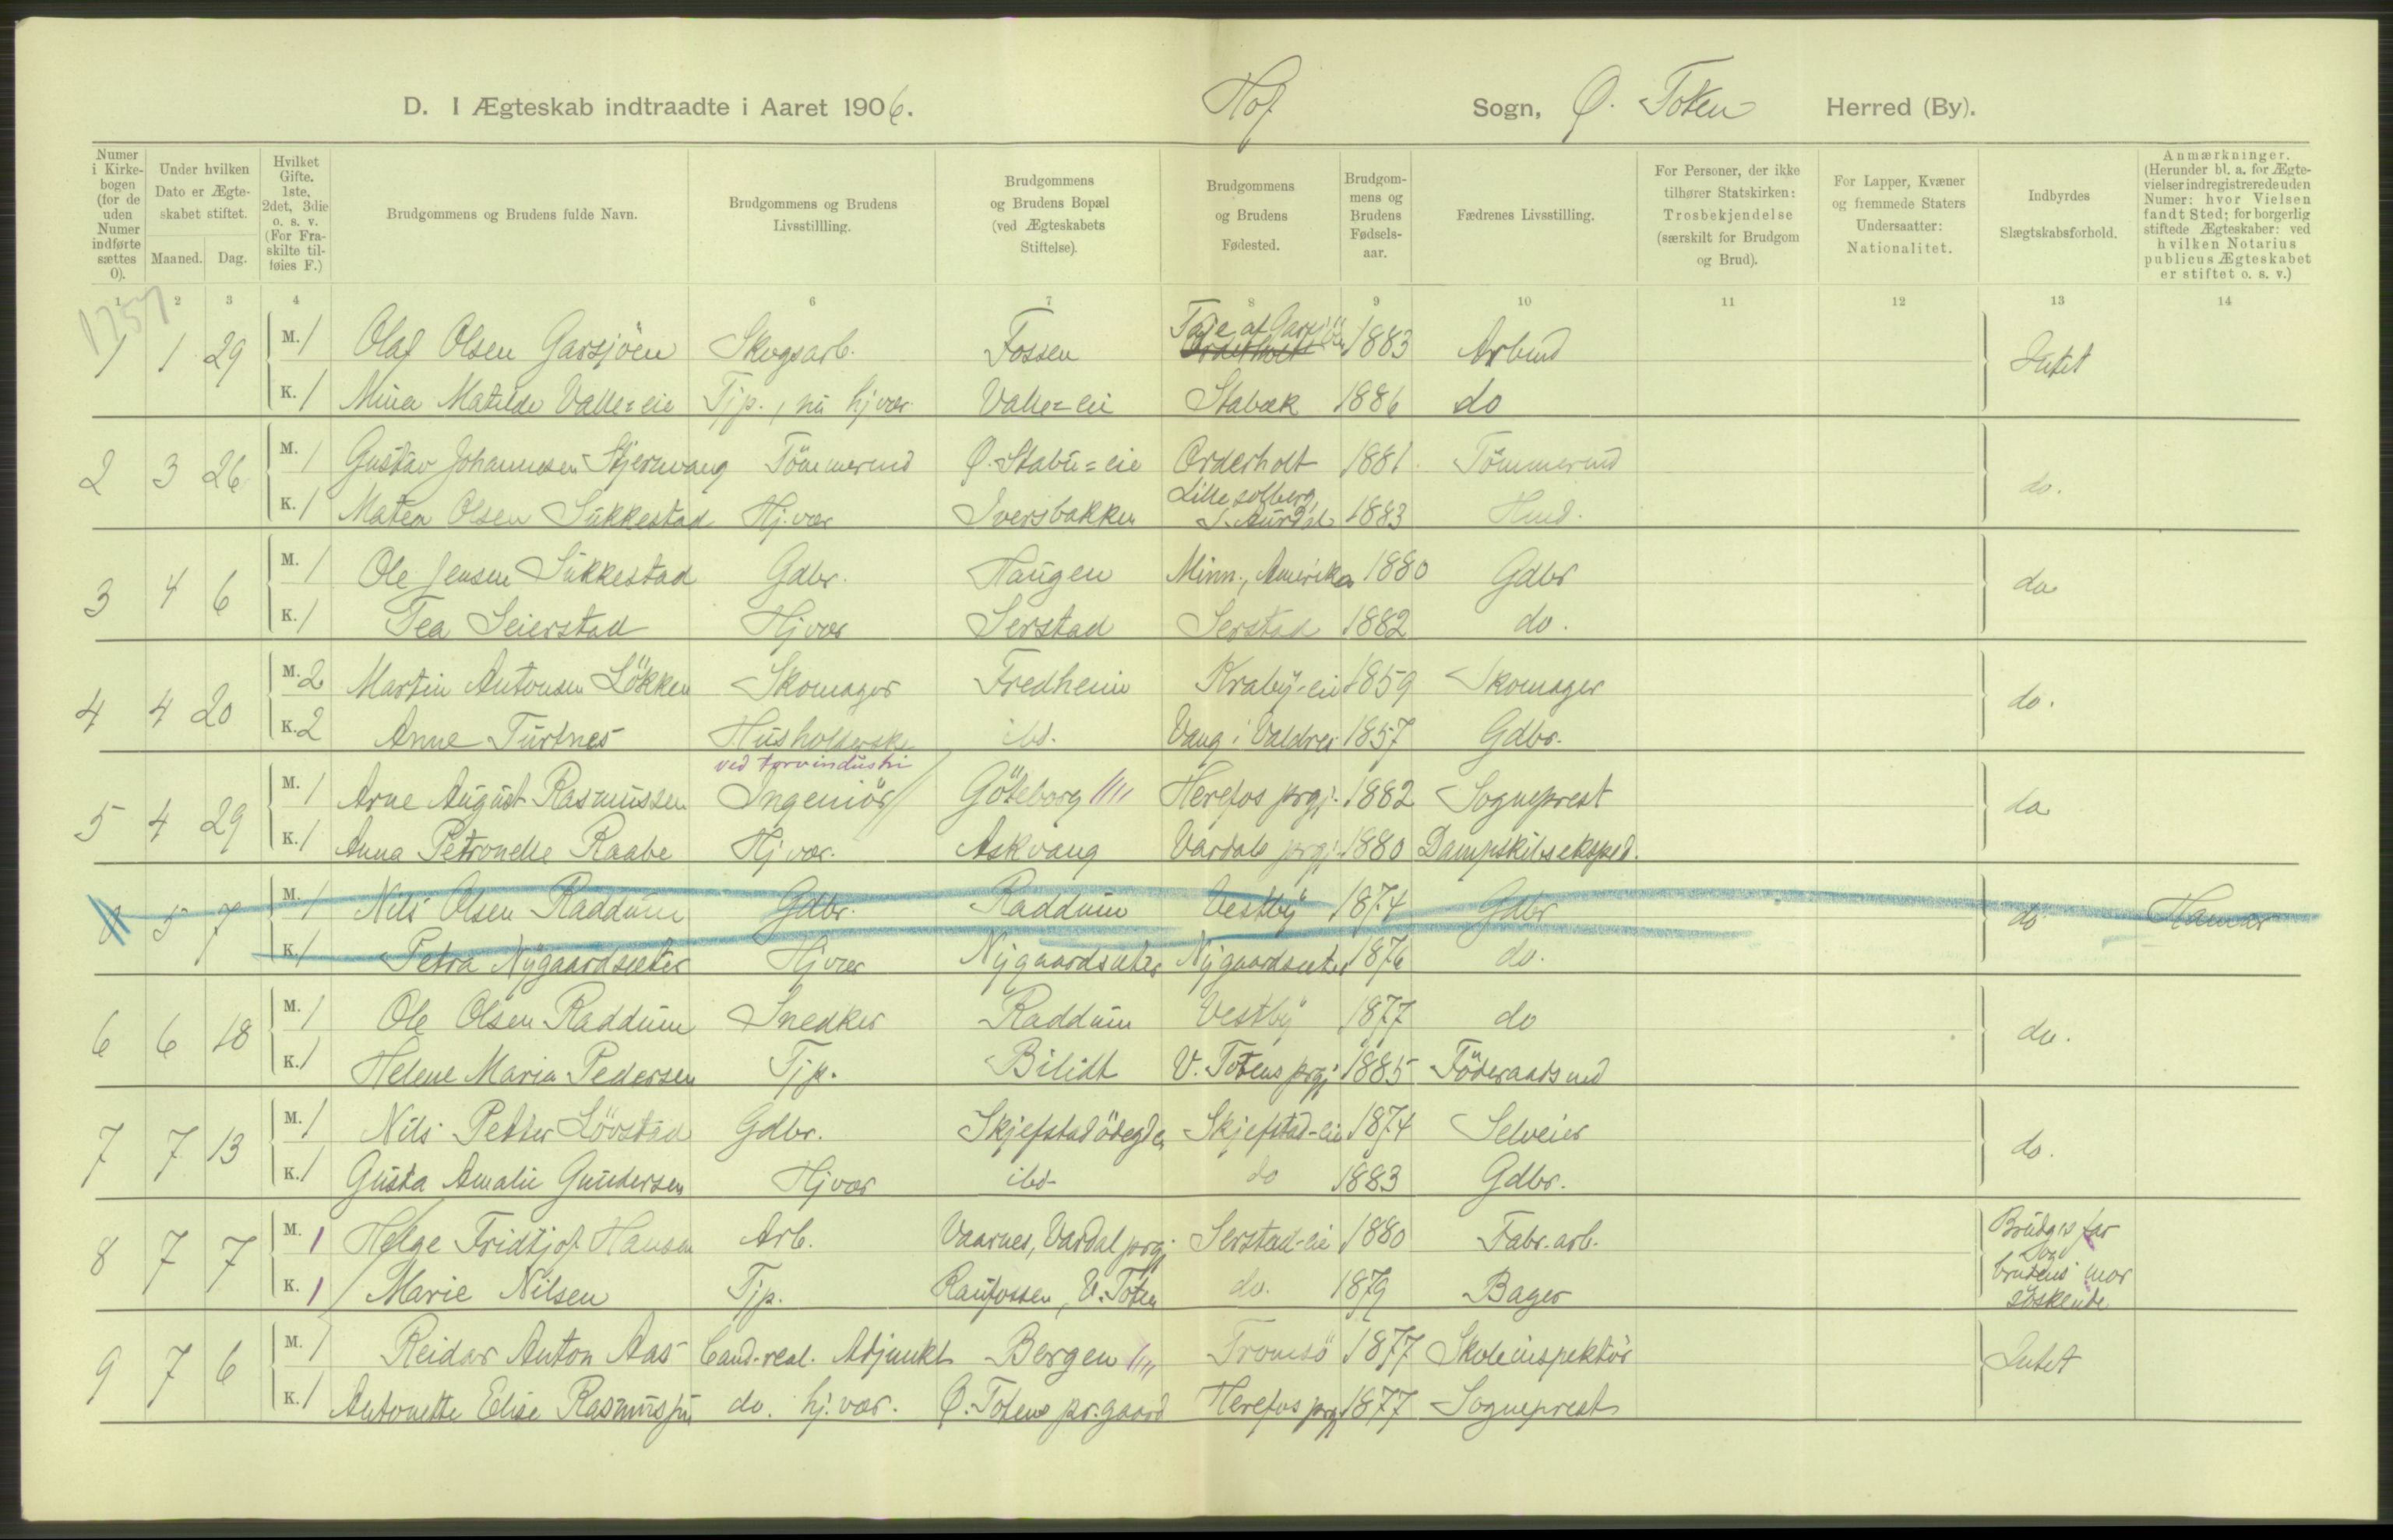 D. I Ægteskab indtraadte i Aaret 1906. Hof Sogn, Ø. Toten Herred (By).
Numer i Kirkebogen (for de uden Numer indførte sættes 0).
Under hvilken Dato er Ægteskabet stiftet.
Maaned. Dag.
Hvilket Gifte. 1ste, 2det, 3die o. s. v. (For Fraskilte tilføies F.)
Brudgommens og Brudens fulde Navn.
Brudgommens og Brudens Livsstillling.
Brudgommens og Brudens Bopæl (ved Ægteskabets Stiftelse).
Brudgommens og Brudens Fødested.
Brudgommens og Brudens Fødselsaar.
Fædrenes Livsstilling.
For Personer, der ikke tilhører Statskirken: Trosbekjendelse (særskilt for Brudgom og Brud).
For Lapper, Kvæner og fremmede Staters Undersaatter: Nationalitet.
Indbyrdes Slægtskabsforhold.
Anmærkninger. (Herunder bl. a. for Ægtevielser indregistrerede uden Numer: hvor Vielsen fandt Sted; for borgerlig stiftede Ægteskaber: ved hvilken Notarius publicus Ægteskabet er stiftet o. s. v.)
1 2 3 4 6 7 8 9 10 11 12 13 14
1257
1 1 29 M. 1 Olaf Olsen Garsjöen Skogsarb. Fossen Taje af Garsjöen 1883 Arbmd Intet
K. 1 Mina Matilde Valle=eie Tjp., nu hjvær. Valle=eie Stabæk 1886 do
2 3 26 M. 1 Gustav Johannesen Stjernvang Tömmermd Ø. Stabu=eie Orderholt 1881 Tömmermd do.
K. 1 Matea Olsen Sukkestad Hj.vær Iversbakken Lille solberg, S. Aurdal 1883 Hmd.
3 4 6 M. 1 Ole Jensen Sukkestad Gdbr. Haugen Minn., Amerika 1880 Gdbr do
K. 1 Tea Seierstad Hjvær Serstad Serstad 1882 do.
4 4 20 M. 2 Martin Antonsen Lökken Skomager Fredheim Kraby-eie 1859 Skomager do.
K. 2 Anne Turtnes Husholderske ibd. Vang i Valdres 1857 Gdbr.
ved torvindustri
5 4 29 M. 1 Arne August Rasmussen Ingeniör Göteborg Herefos prgj. 1882 Sogneprest do
K. 1 Anna Petronelle Raabe Hjvær. Askvang Vardals prgj. 1880 Dampskibseksped.
0 5 7 M. 1 Nils Olsen Raddum Gdbr. Raddum Vestby 1874 Gdbr do Hamar
K. 1 Petra Nygaardsæter Hjvær Nygaardsæter Nygaardsæter 1876 do.
6 6 18 M. 1 Ole Olsen Raddum Snedker Raddum Vestby 1877 do do.
K. 1 Helene Maria Pedersen Tjp. Bilidt V. Totens prgj 1885 Föderaadsmd
7 7 13 M. 1 Nils Petter Lövstad Gdbr. Skjefstadödegden Skjefstad-eie 1874 Selveier do.
K. 1 Gusta Amalie Gundersen Hjvær ibd. do 1883 Gdbr.
8 7 7 M. 1 Helge Fridtjof Hansen Arb. Vaarnes, Vardal prgj Serstad-eie 1880 Fabr.arb. Brudg's far og brudens mor söskende
K. 1 Marie Nilsen Tjp. Raufossen, V. Toten do. 1879 Bager
9 7 6 M. 1 Reidar Anton Aas Cand-real. Adjunkt Bergen Tromsö 1877 Skoleinspektör Intet
K. 1 Antonette Elise Rasmussen do. hj.vær. Ø. Totens pr.gaard Herefos prgj 1877 Sogneprest